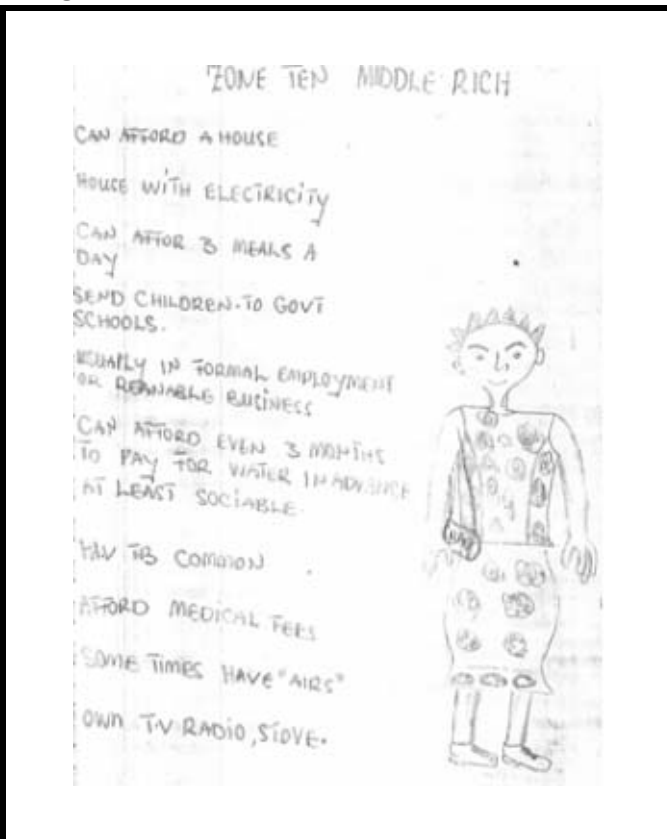 ZONE TEN MIDDLE RICH
CAN AFFORD A HOUSE
HOUSE WITH ELECTRICITY
CAN AFFOR 3 MEALS A
DAY
SEND CHILDREN TO GOVT
SCHOOLS.
USUALLY IN FORMAL EMPLOYMENT
OR REANABLE BUSINESS
CAN AFFORD EVEN 3 MONTHS
TO PAY FOR WATER IN ADVANCE
AT LEAST SOCIABLE
TB COMMON
AFFORD MEDICAL FEES
SOME TIMES HAVE "AIRS"
OWN T.V RADIO, STOVE.